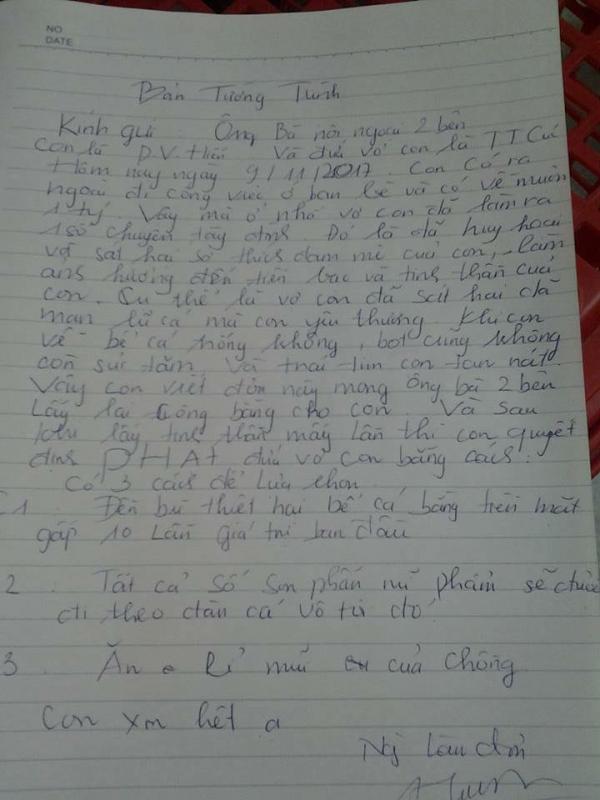 NO
DATE
Bản Tương Trình
Kính gửi Ông Bà nội ngoại 2 bên
Con là P.V. Hiếu Và đứa vợ con là T.T Cúc
Hôm nay ngày 9/11/2017. Con có ra
ngoài đi công việc ở bạn bè và có về muộn
1 tý. Vậy mà ở nhà vợ con đã làm ra
1 số chuyện tày đình. Đó là đã huỷ hoại
và sát hại sở thích đam mê của con, làm
ảnh hưởng đến tiền bạc và tinh thần của
con. Cụ thể là vợ con đã sát hại dã
man lũ cá mà con yêu thương. Khi con
về bể cá trống không, bọt cũng không
còn sủi tăm. Và trái tim con tan nát.
Vậy con viết đơn này mong ông bà 2 bên
Lấy lại Công bằng cho con. Và sau
lấy tinh thần mấy lần thì con quyết
định PHẠt đứa vợ con bằng cách:
Có 3 cách để lựa chọn
C1 Đền bù thiệt hại bể cá bằng tiền mặt
gấp 10 Lần giá trị ban đầu
2 Tất cả số son phấn mĩ phẩm sẽ
đi theo đàn cá vô tư đó
3 Ăn mũi của chồng
Con xin hết ạ
Ng Làm đơn